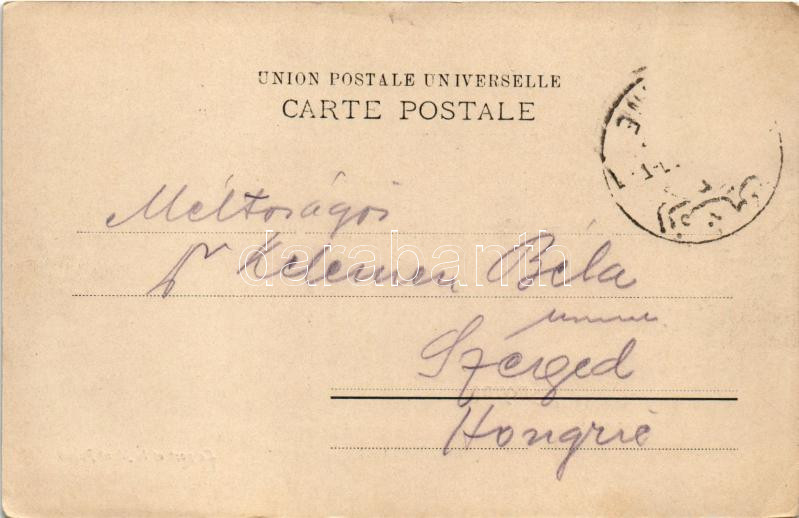 UNION POSTALE UNIVERSELLE
CARTE POSTALE
Méltóságos
Dr Kelemen Béla
Szeged
Hongrie
darabanth